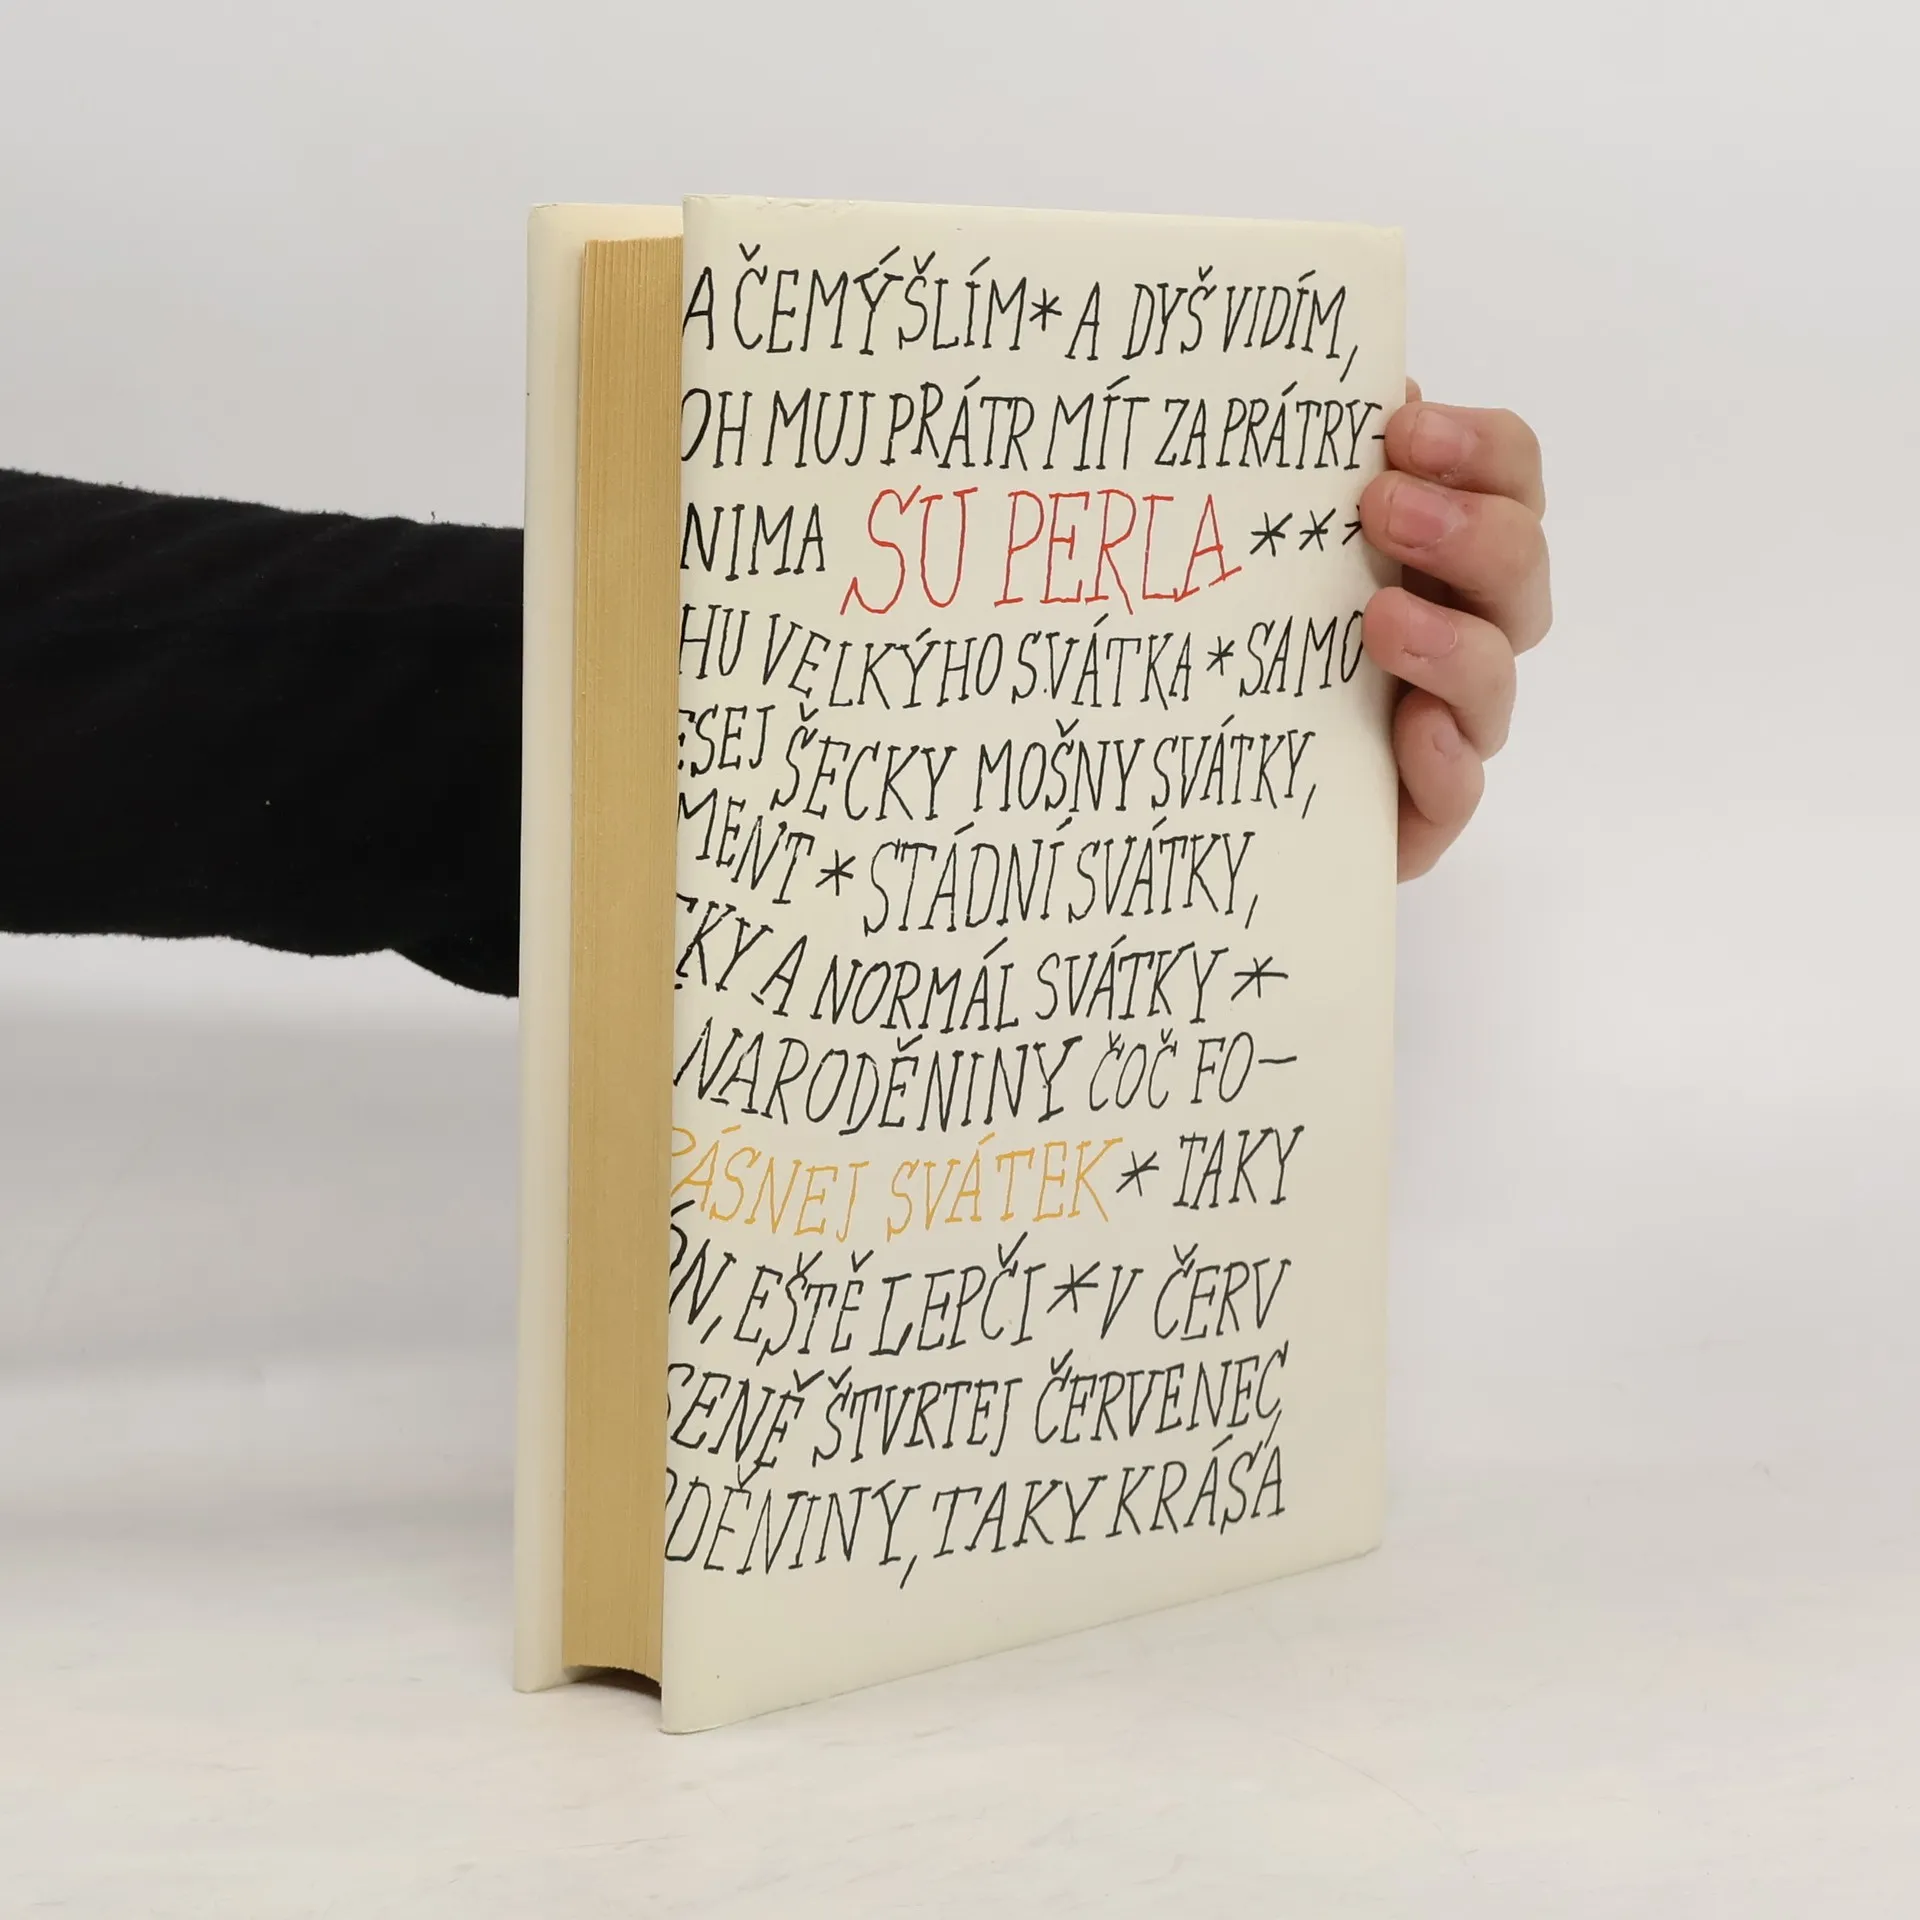 A ČEMÝŠLÍM * A DYŠ VIDÍM,
OH MUJ PRÁTR MÍT ZA PRÁTRY-
NIMA SU PERLA ***
HU VELKÝHO SVÁTKA * SAMO
ESEJ ŠECKY MOŠNY SVÁTKY,
MENT * STÁDNÍ SVÁTKY,
KY A NORMÁL SVÁTKY *
NARODĚNINY ČOČ FO—
ÁSNEJ SVÁTEK * TAKY
N, EŠTĚ LEPČI * V ČERV
SENĚ ŠTVRTEJ ČERVENEC,
DĚNINY, TAKY KRÁSA